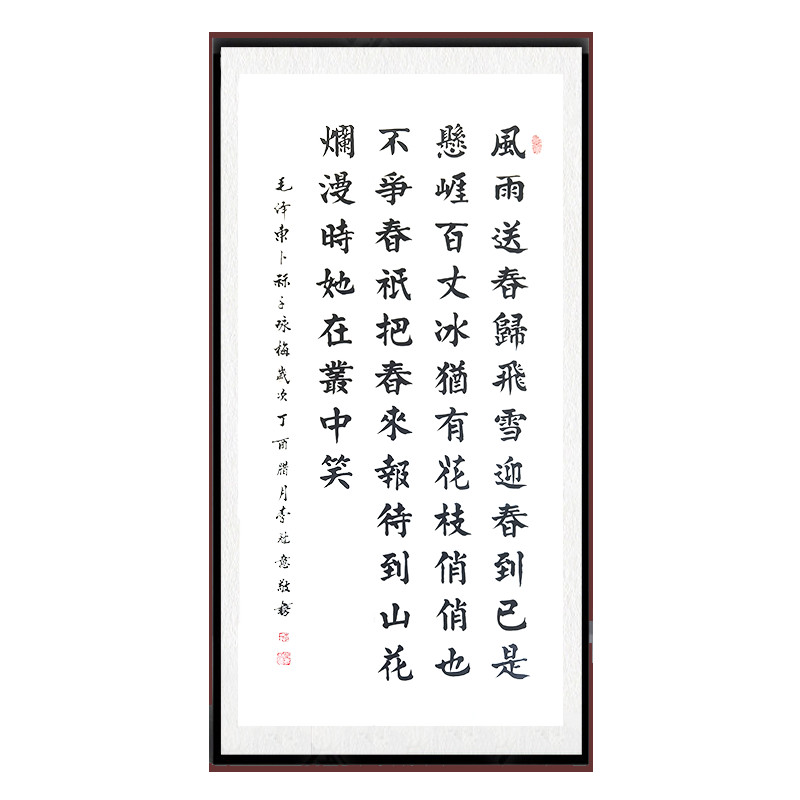 風雨送春歸飛雪迎春到已是
懸崕百丈冰猶有花枝俏俏也
不爭春祇把春來報待到山花
爛漫時她在叢中笑
毛泽東卜祘子咏梅歲次丁酉腊月李意敬書